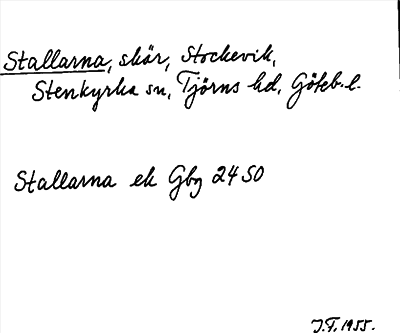 Stallarna, skär, Stockevik,
Stenkyrka sn, Tjörns hd, Göteb. l.
Stallarna ek Gbg 24 SO
J.F. 1955.